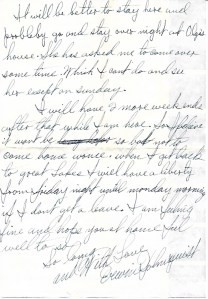 It will be better to stay here and
probbley go and stay over night at Olgas
house. She has asked me to come over
some time. Which I cant do and see
her except on sunday.
I will have 7 more weekends
after that while I am here. So I believe
it wont be so bad not to
come home wonce. when I get back
to great Lakes I will have a liberty
from friday night until monday morning
if I don't get a leave. I am feeling
fine and hope you at home feel
well to so,
So long
and With Love